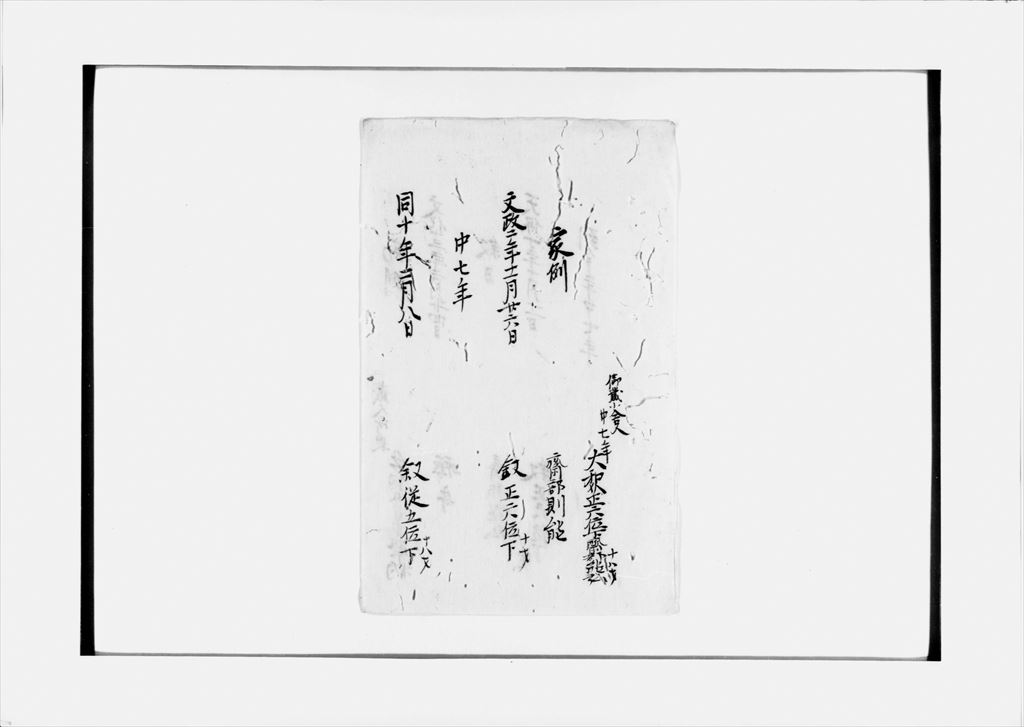 御蔵小舎人
中七年
正六位
家例
齋部則能
文政二年十二月廿六日
叙正六位下 十才
中七年
同十年二月八日
叙従五位下 十八才